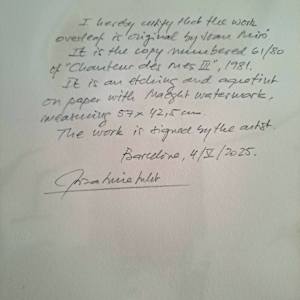 I hereby certify that the work
overleaf is original by Joan Miró
It is the copy numbered 61/50
of "Chanteur des rues III", 1981.
It is an etching and aquatint
on paper with Maeght watermork,
measuring 57 x 42,5 cm.
The work is signed by the artist.
Barcelona, 4/V/2025.